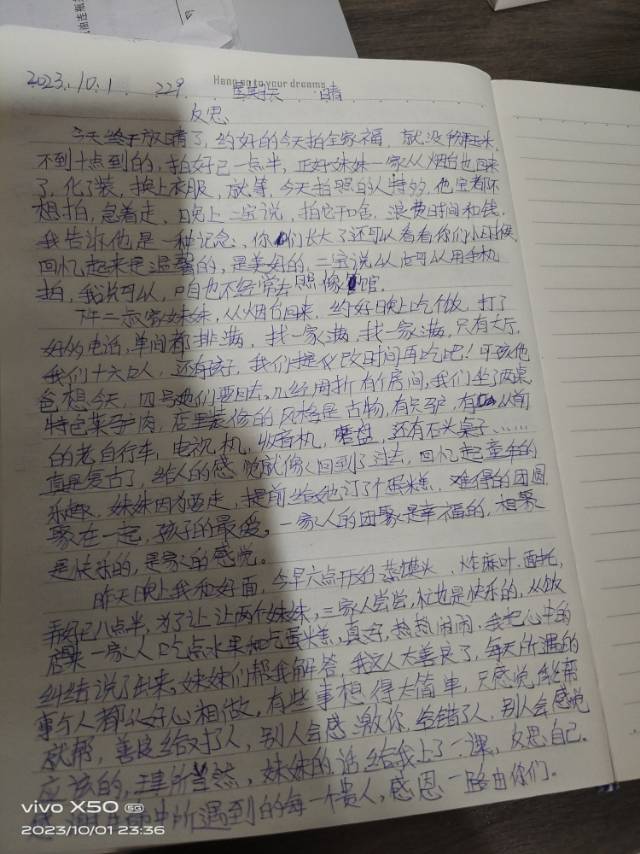 Hang on to your dreams
2023.10.1. 229. 星期天 晴
反思
今天终于放晴了，约好的今天拍全家福，就没
不到十点到的，拍好已一点半，正好妹妹一家从烟台也回来
了，化了装，换上衣服，就等，今天拍照的人特多，他
想拍，急着走，晚上二宝说，拍它干啥，浪费时间和钱，
我告诉他是一种记念，你们长大了还可以看看你们小时候
回忆起来是温馨的，是美好的，二宝说以后可以用手机
拍，我说可以，咱也不经常去照像馆。
下午二家妹妹，从烟台回来，约好晚上吃饭，打了
好多电话，单间都排满，找一家满，找一家满，只有大厅，
我们十六口人，还有孩子，我们提议改时间再吃吧！可孩他
爸想今天，四号她们要回去，几经周折有个房间，我们坐了两桌
特色菜驴肉，店里装修的风格是古物，有，有从前
的老自行车，电视机，收音机，磨盘，还有石头桌子……
真是复古了，给人的感觉就像回到了过去，回忆起童年的
乐趣，妹妹因为要走，提前给她订了个蛋糕，难得的团圆
聚在一起，孩子的最爱，一家人的团聚是幸福的，相聚
是快乐的，是家的感觉。
昨天晚上我和好面，今早六点开始蒸馍头，炸麻叶，面托，
弄好已八点半，为了让让两个妹妹，三家人尝尝，忙也是快乐的，从饭
店一家人吃点水果和吃蛋糕，真好，热热闹闹，我把心中的
纠结说了出来，妹妹们帮我解答，我这人太善良了，每天所遇的
事个人都从好心相做，有些事想得太简单，只感觉能帮
就帮，善良给对了人，别人会感激你，给错了人，别人会感觉
应该的，理所当然，妹妹的话给我上了一课，反思自己。
感中所遇到的每一个贵人，感恩一路由你们。
vivo X50 5G
2023/10/01 23:36